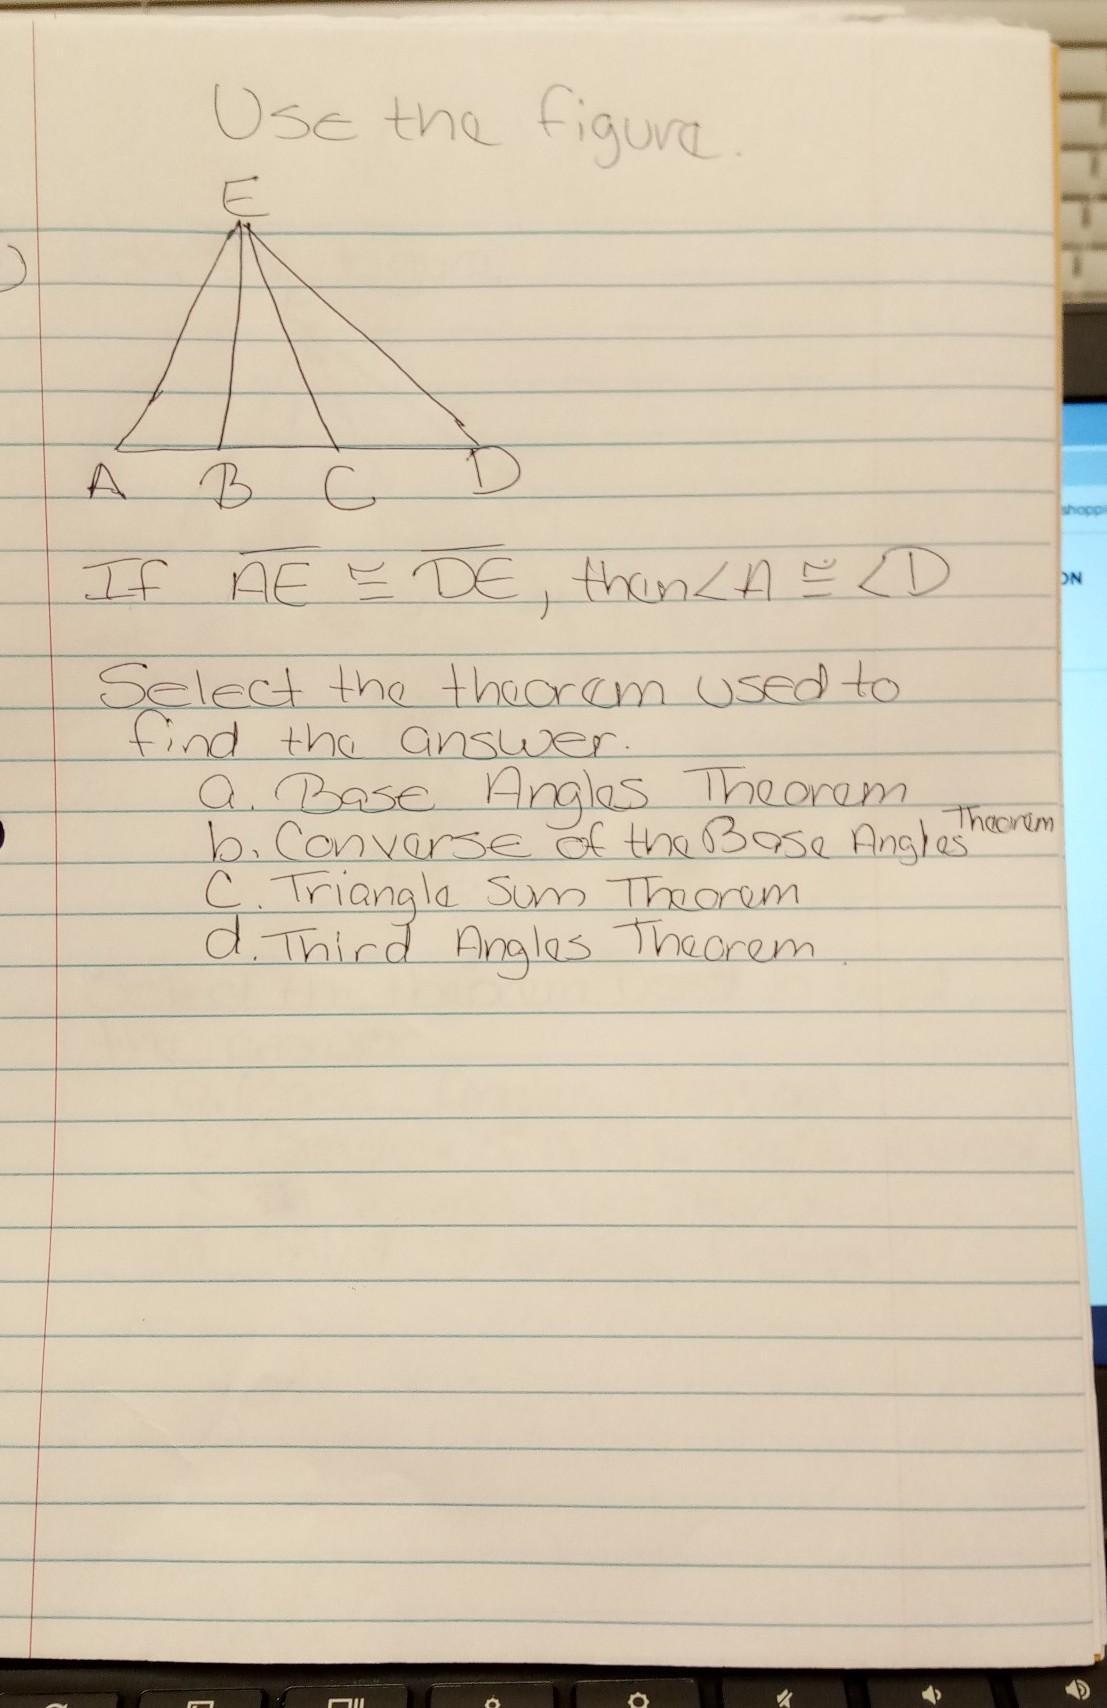 Use the figure.
E
A B C D
If AE ≅ DE, then ∠A ≅ ∠D
Select the theorem used to
find the answer.
a. Base Angles Theorem
b. Converse of the Base Angles Theorem
c. Triangle Sum Theorem
d. Third Angles Theorem